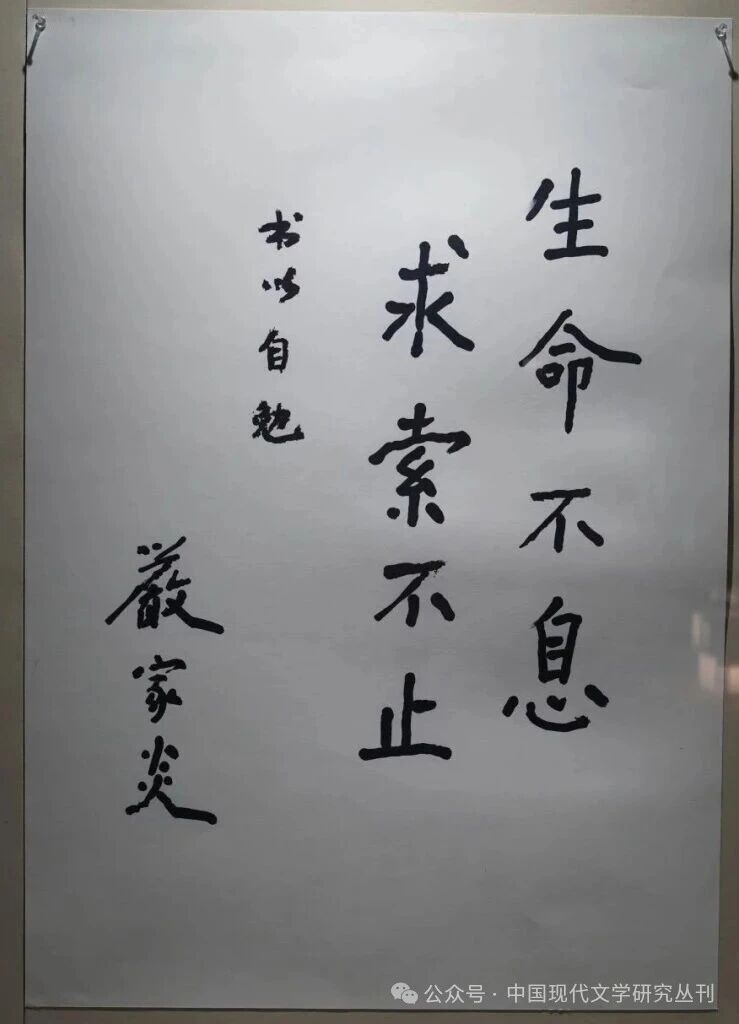 生命不息
求索不止
书以自勉
嚴家炎
公众号·中国现代文学研究丛刊